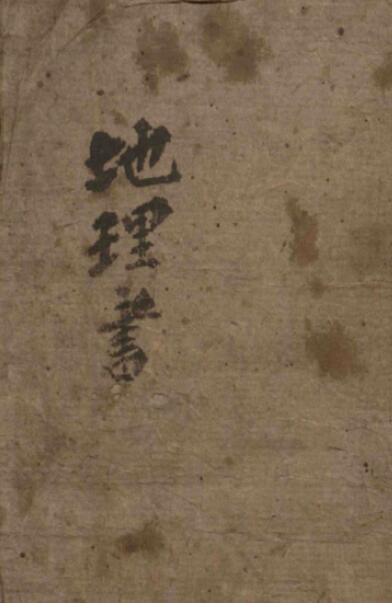 地理書